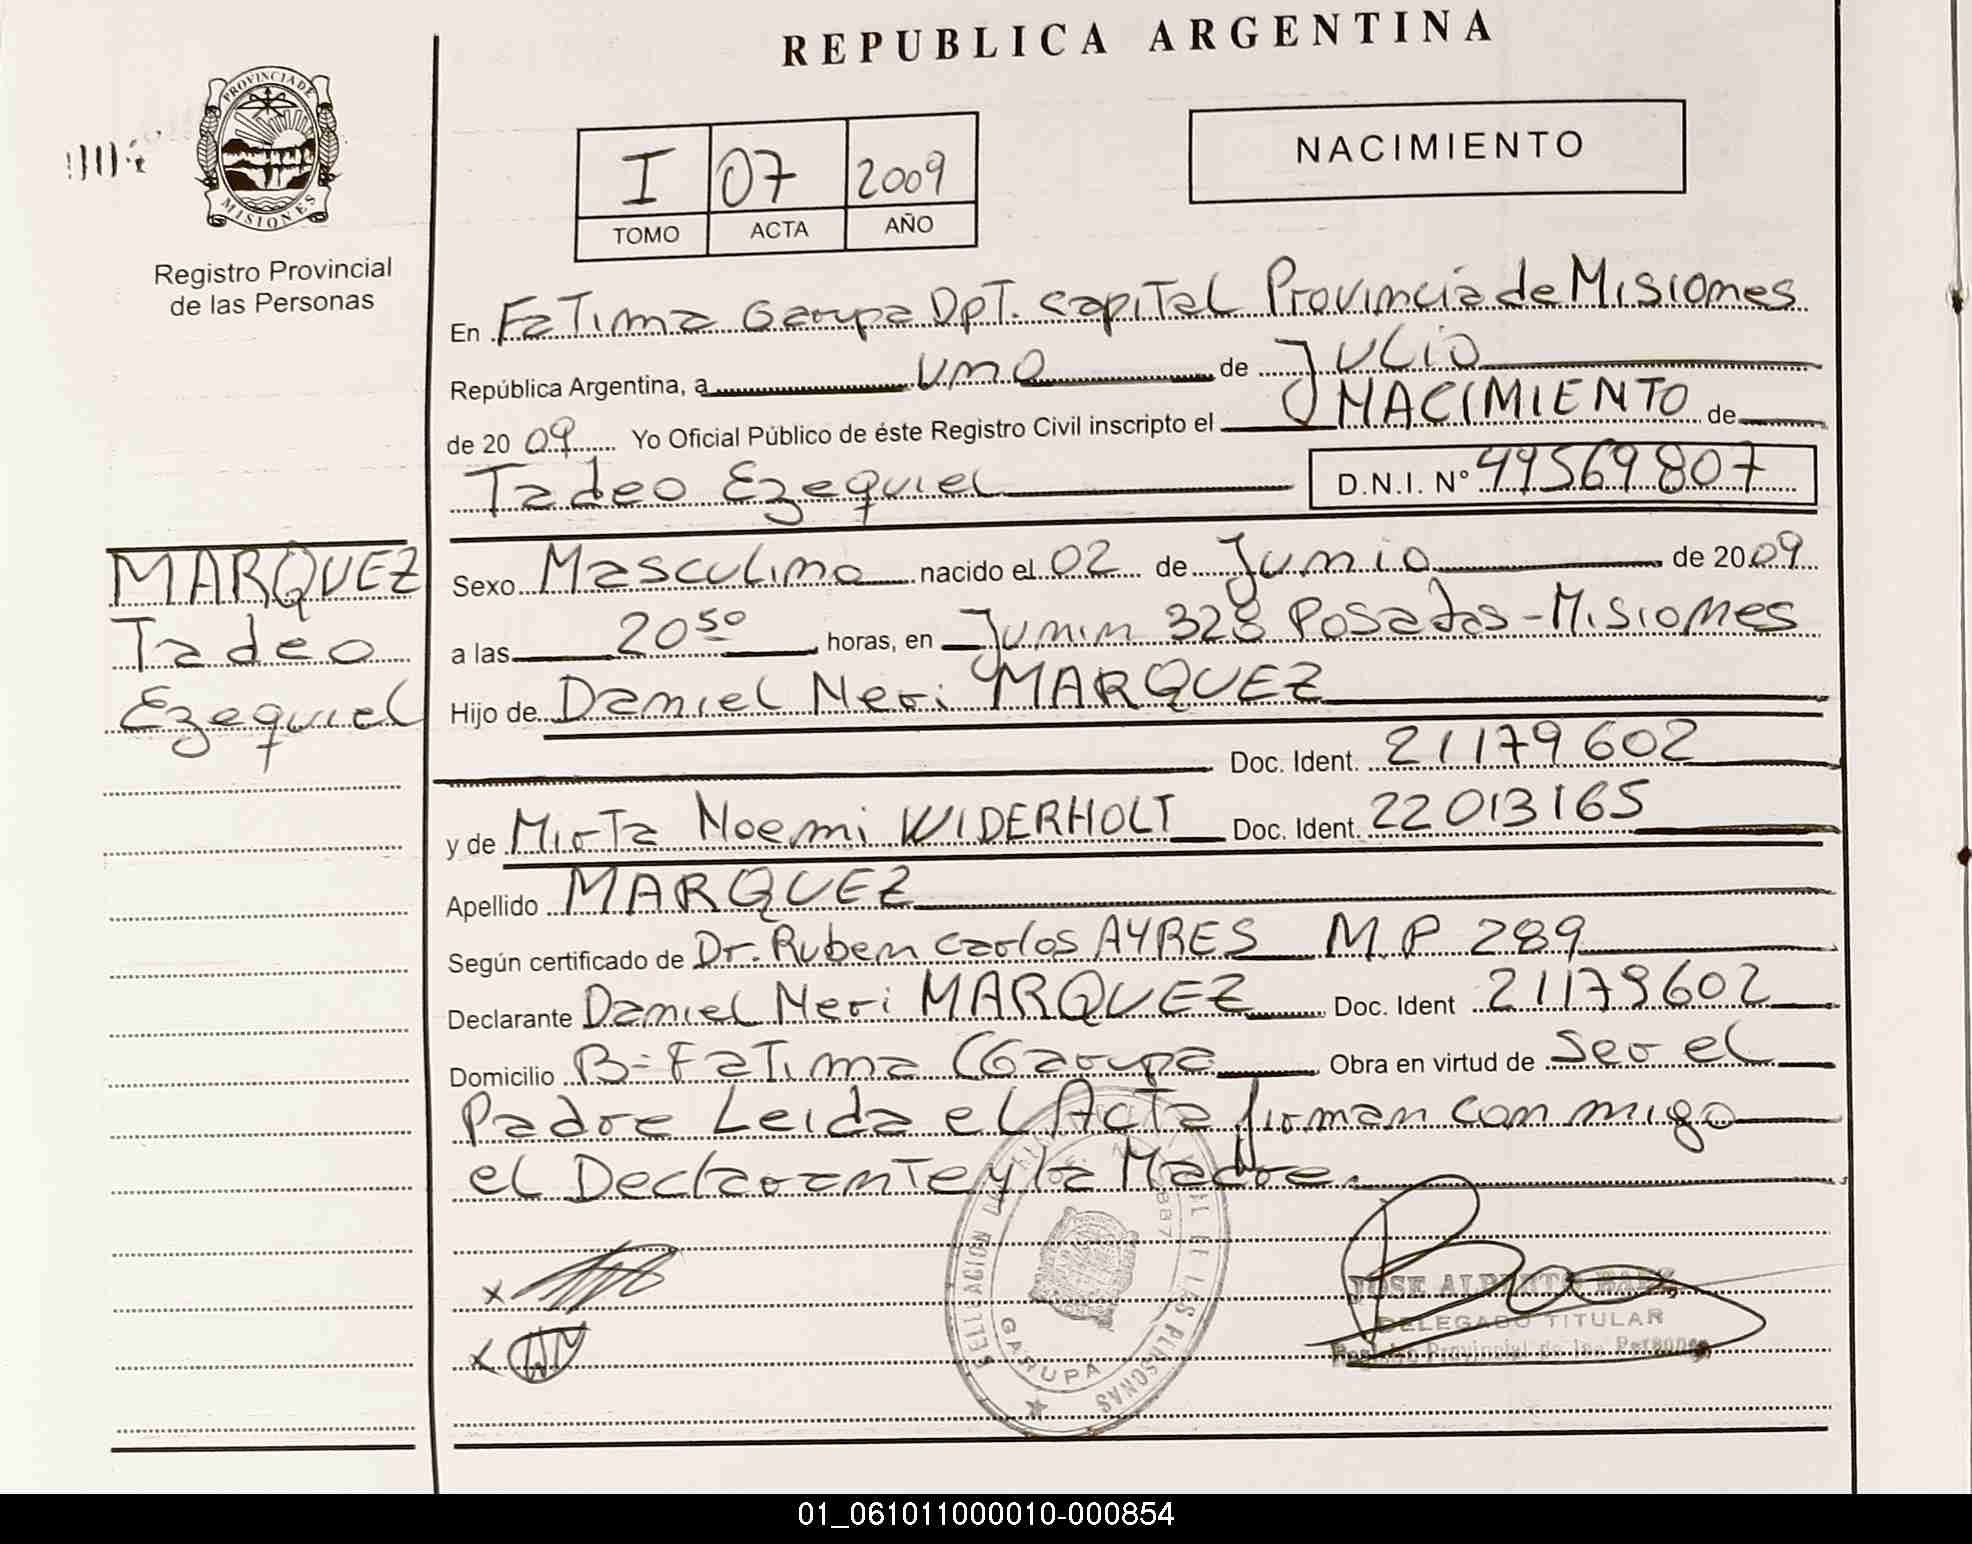 REPUBLICA ARGENTINA
PROVINCIA DE
MISIONES
Registro Provincial
de las Personas
I 07 2009
TOMO ACTA AÑO
NACIMIENTO
En Fatima Garupa Dpt. Capital Provincia de Misiones
República Argentina, a uno de Julio
de 2009 Yo Oficial Público de éste Registro Civil inscripto el NACIMIENTO de
Tadeo Ezequiel D.N.I. Nº 49569807
MARQUEZ
Tadeo
Ezequiel
Sexo Masculino nacido el 02 de Junio de 2009
a las 20 50 horas, en Junin 328 Posadas - Misiones
Hijo de Daniel Neri MARQUEZ
Doc. Ident. 21179602
y de Mirta Noemi WIDERHOLT Doc. Ident. 22013165
Apellido MARQUEZ
Según certificado de Dr. Ruben Carlos AYRES M.P 289
Declarante Daniel Neri MARQUEZ Doc. Ident 21179602
Domicilio B= Fatima (Garupa Obra en virtud de Ser el
Padre Leida el Acta firman con migo
el Declarante y la Madre.
JOSE ALBERTO BAEZ
DELEGADO TITULAR
Registro Provincial de las Personas
GARUPA
LAS PERSONAS
01_061011000010-000854